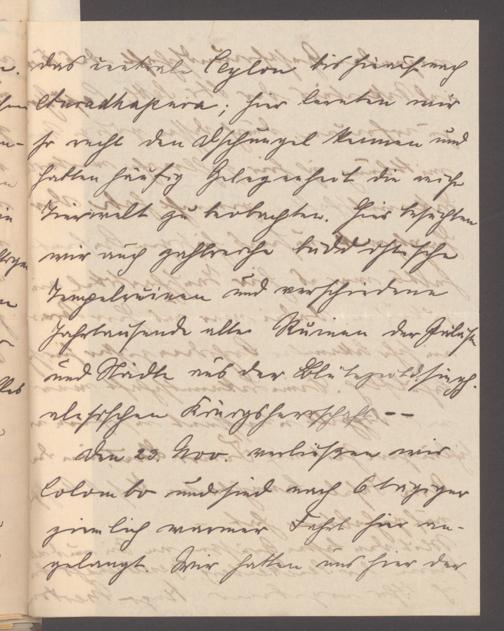 das centrale Ceylon bis hinauf nach
Anuradhapura; hier lernten wir
so recht den Dschungel kennen und
hatten häufig Gelegenheit die reiche
Tierwelt zu beobachten. Hier besuchten
wir auch zahlreiche buddhistische
Tempelruinen und verschiedene
Jahrtausende alte Ruinen der Paläste
und Städte aus der Blütezeit singh-
alesischen Königsherrschaft. --
Den 23. Nov. verliessen wir
Colombo und sind nach 6 tägiger
ziemlich warmer Fahrt hier an-
gelangt. Wir hatten uns hier der